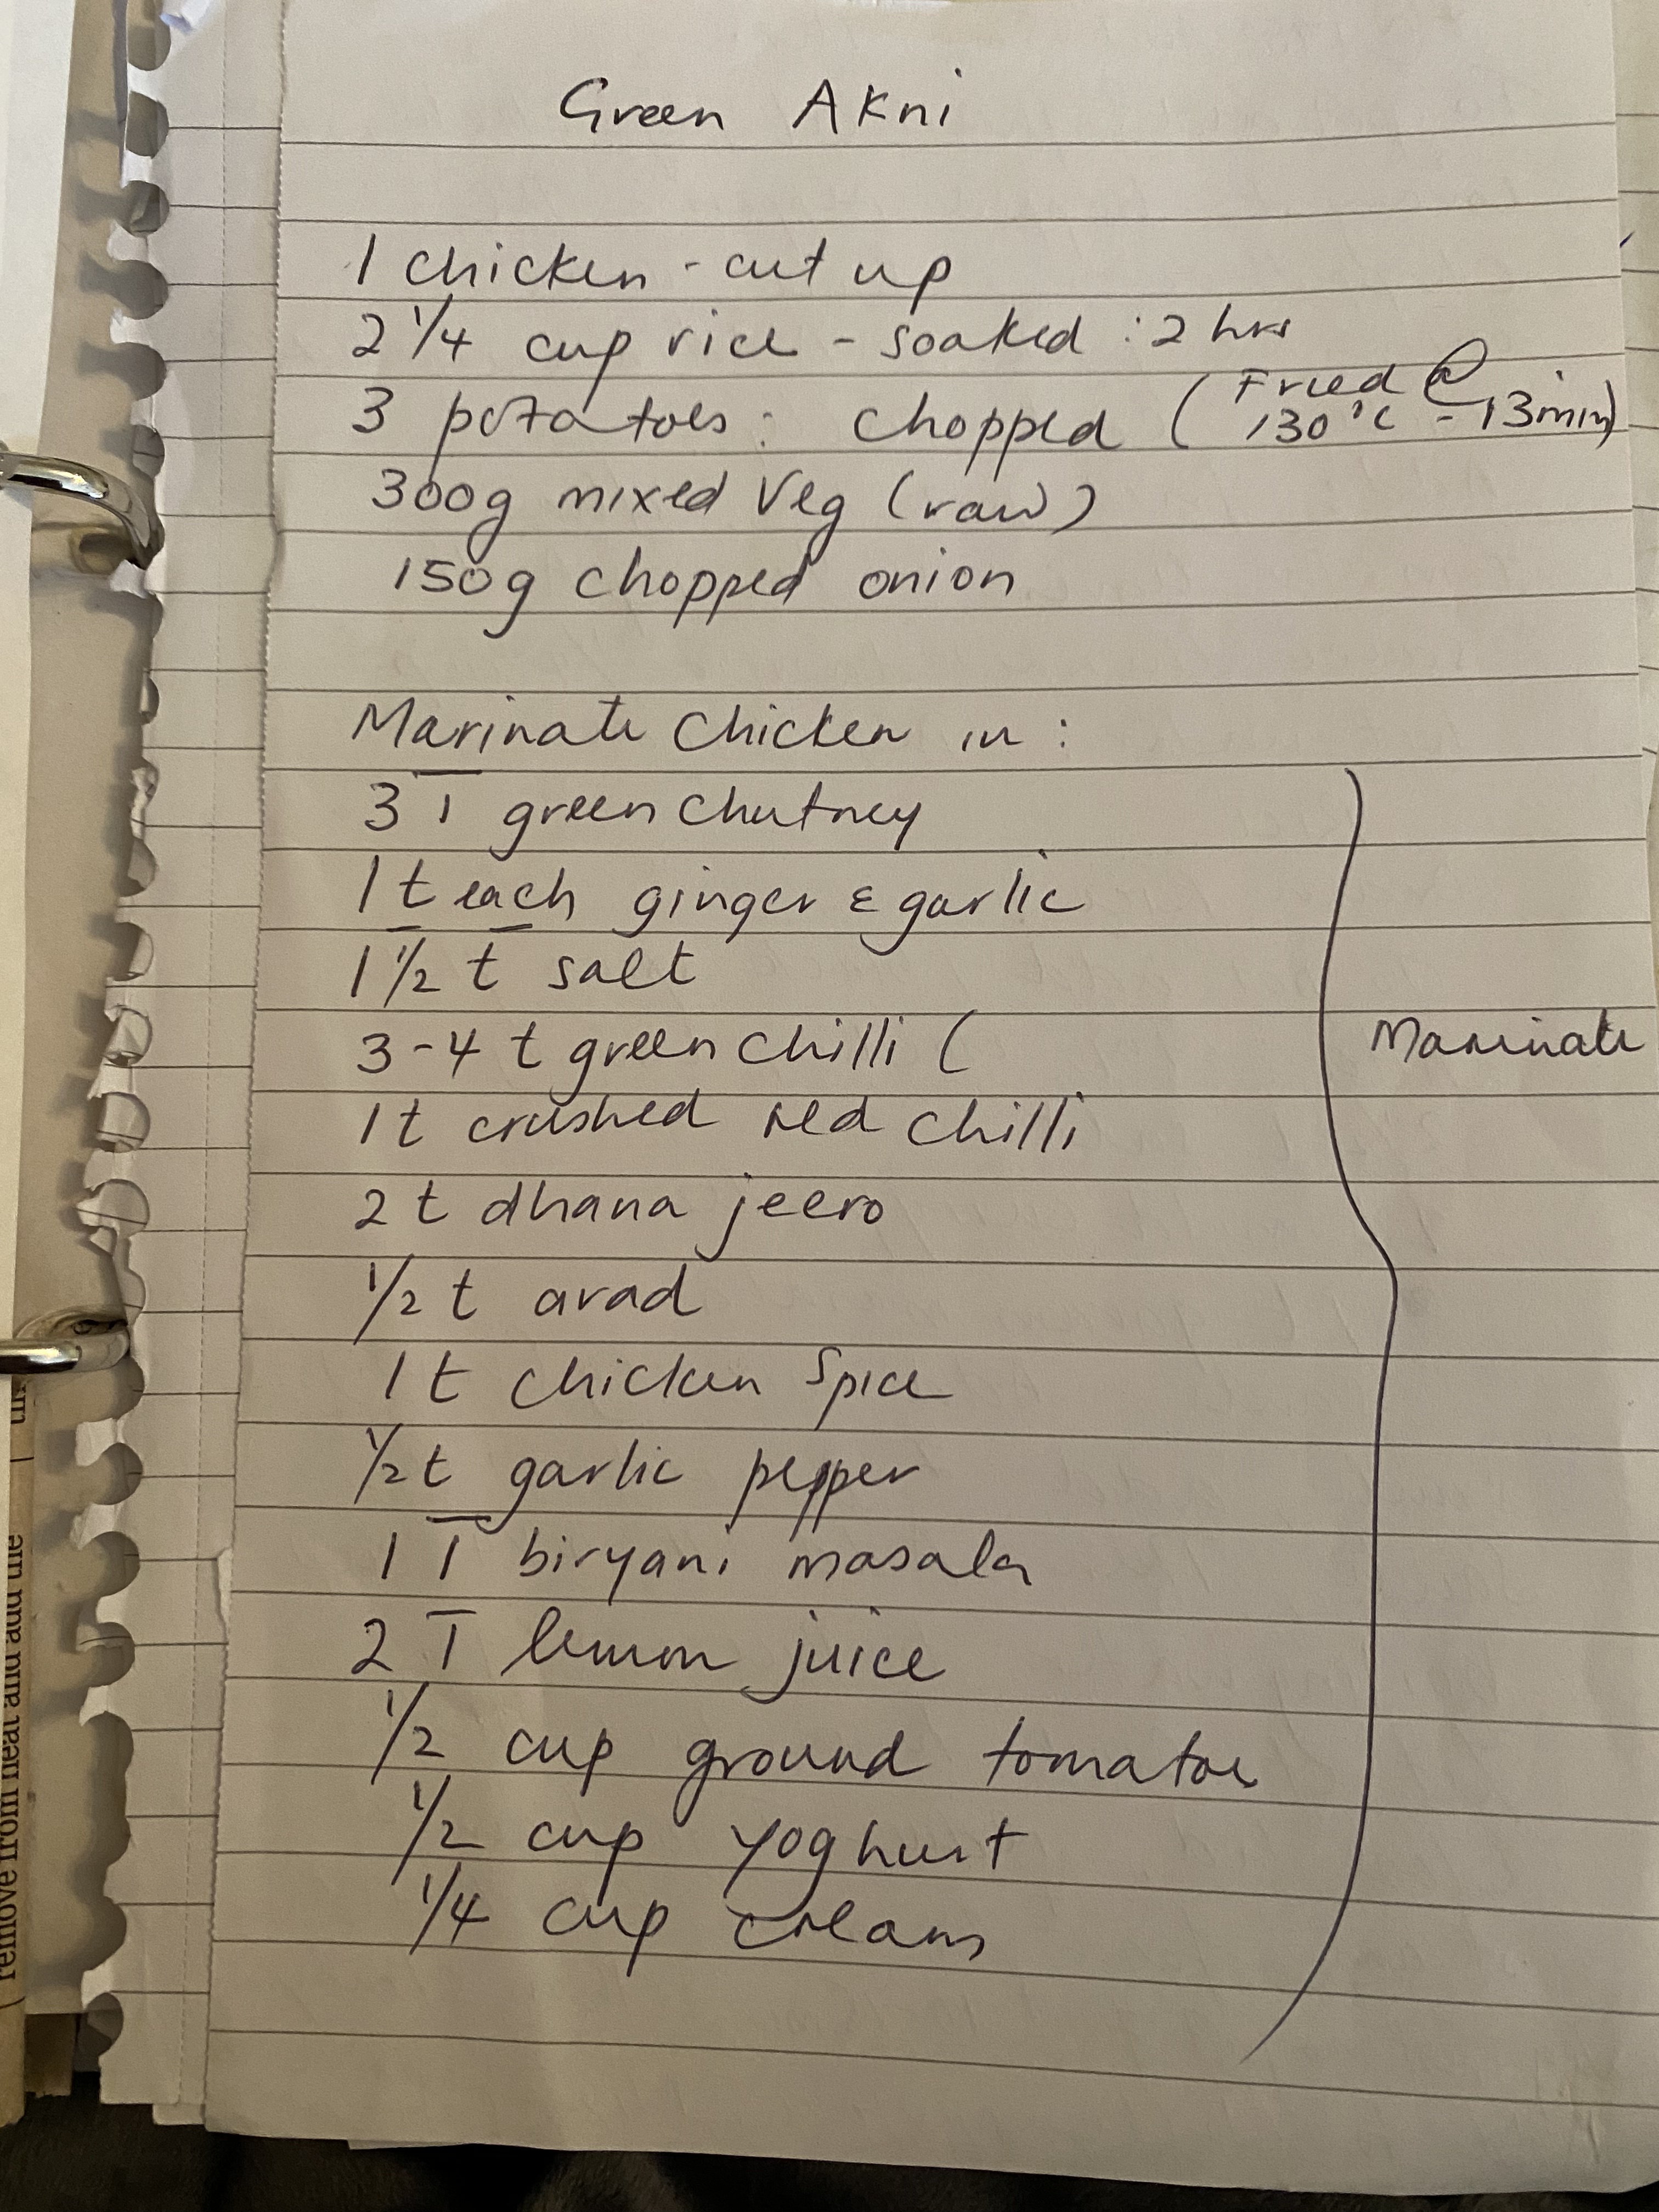 Green Akni
1 chicken - cut up
2 1/4 cup rice - soaked : 2 hrs
3 potatoes : chopped (Fried @
130°c - 13min)
300g mixed veg (raw)
150g chopped onion
Marinate chicken in :
3 T green chutney
1 t each ginger & garlic
1 1/2 t salt
3-4 t green chilli (
1 t crushed red chilli
2 t dhana jeero
1/2 t arad
1 t chicken spice
1/2 t garlic pepper
1 T biryani masala
2 T lemon juice
1/2 cup ground tomatoe
1/2 cup yoghurt
1/4 cup cream
Marinate
remove from heat and add the